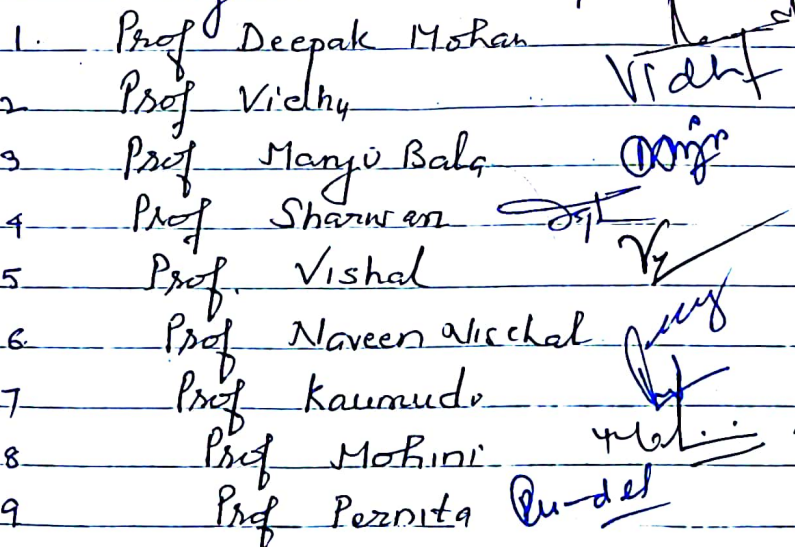 1. Prof Deepak Mohan
2 Prof Vidhy Vidhy
3 Prof Manju Bala
4 Prof Sharwan
5 Prof. Vishal
6. Prof Naveen Nischal
7 Prof Kaumudi
8 Prof Mohini
9 Prof Pernita